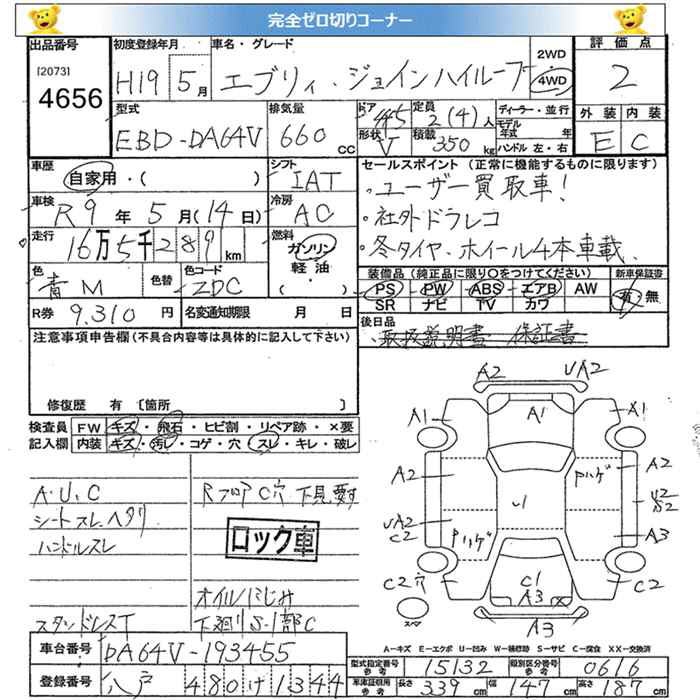 完全ゼロ切りコーナー
出品番号 初度登録年月 車名・グレード 2WD 評価点
[2073]
4656 H19 5月 エブリィ・ジョインハイルーフ 4WD 2
型式 排気量 ドア 45 定員 2(4)人 ディーラー・並行 外装 内装
EBD-DA64V 660 CC 形状 V 積載 350 kg モデル年式 年 ハンドル 左・右 E C
車歴 自家用・( ) シフト IAT セールスポイント (正常に機能するものに限ります)
・ユーザー買取車!
車検 R9年 5月(14日) 冷房 AC ・社外ドラレコ
走行 16万5千289km 燃料 ガソリン 軽油・( ) ・冬タイヤ、ホイール4本車載
装備品(純正品に限り○をつけてください) 新車保証書
色 青M 色替 色コード ZDC PS PW ABS エアB AW 有・無
SR ナビ TV カワ
R券 9,310円 名変通知期限 月 日
後日品 取扱説明書 保証書
注意事項申告欄(不具合内容等は具体的に記入して下さい)
修復歴 有 〔箇所 〕
検査員 FW キズ・飛石・ヒビ割・リペア跡・×要
記入欄 内装 キズ・汚レ・コゲ・穴・スレ・キレ・破レ
A.U.C Rフロア C穴 下見要す
シートスレ、ヘタリ
ハンドルスレ
ロック車
オイルにじみ
スタンドレスT 下廻りS・1部C
A2 UA2
A1 A1 A1
A2 Pハゲ A2
U1 U2 S2
UA2 C2 Pハゲ A3
C2穴 C1 A3 C2
A3
スペア
A-キズ E-エクボ U-凹み W-補修跡 S-サビ C-腐食 XX-交換済
車台番号 DA64V-193455 型式指定番号 参考 15132 類別区分番号 参考 0616
登録番号 八戸 480 け 1344 車庫証明用 参考 長さ 339cm 幅 147cm 高さ 187cm